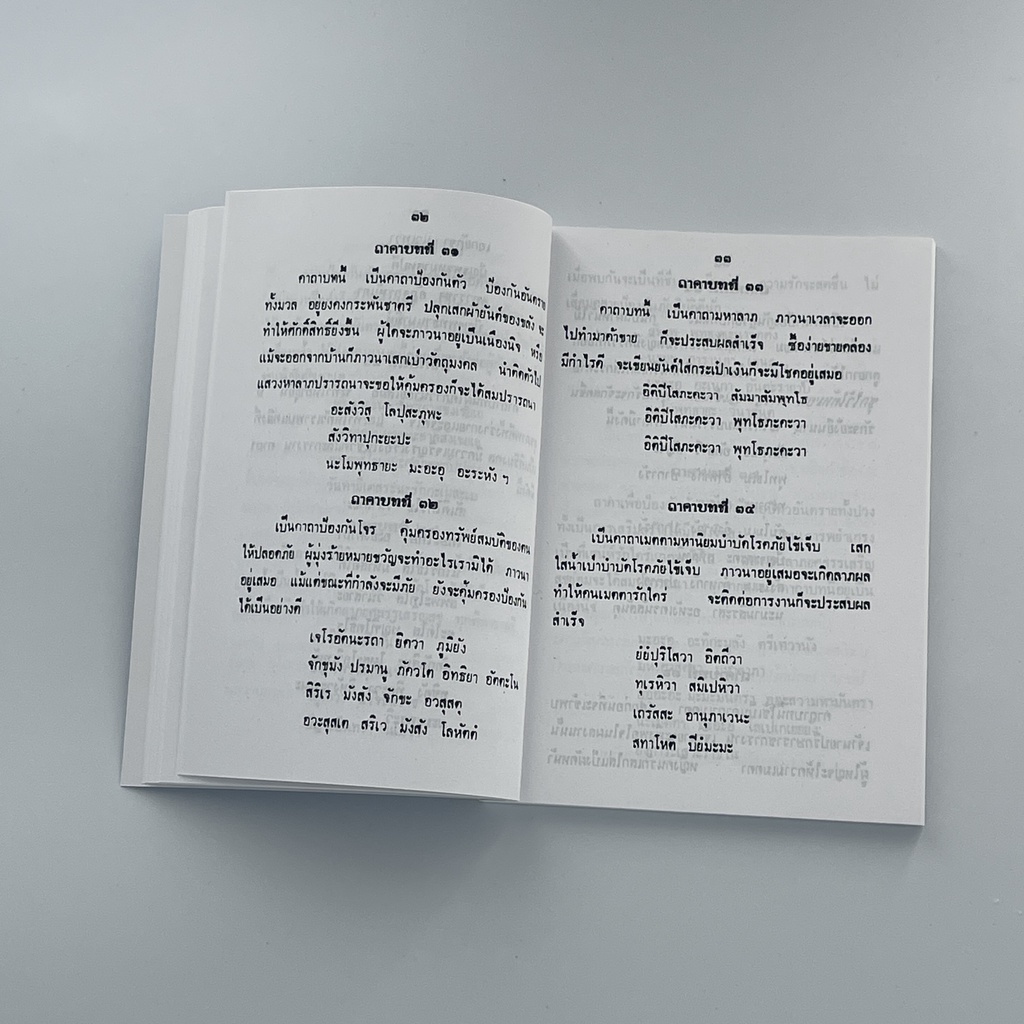 ๓๒
ถาคาบทที่ ๓๑
คาถาบทนี้ เป็นคาถาป้องกันตัว ป้องกันอันตราย
ทั้งมวล อยู่ยงคงกระพันชาตรี ปลุกเสกผ้ายันต์ของขลัง จะ
ทำให้ศักดิ์สิทธิ์ยิ่งขึ้น ผู้ใดจะภาวนาอยู่เป็นเนืองนิจ หรือ
แม้จะออกจากบ้านก็ภาวนาเสกเป่าวัตถุมงคล นำติดตัวไป
แสวงหาลาภปรารถนาจะขอให้คุ้มครองก็จะได้สมปรารถนา
อะสังวิสุ โลปุสะภุพะ
สังวิทาปุกะยะปะ
นะโมพุทธายะ มะอะอุ อะระหัง ฯ
ถาคาบทที่ ๓๒
เป็นคาถาป้องกันโจร คุ้มครองทรัพย์สมบัติของตน
ให้ปลอดภัย ผู้มุ่งร้ายหมายขวัญจะทำอะไรเรามิได้ ภาวนา
อยู่เสมอ แม้แต่ขณะที่กำลังจะมีภัย ยังจะคุ้มครองป้องกัน
ได้เป็นอย่างดี
เจโรอัตนะรถา ยิควา ภูมิยัง
จักขุมัง ปรมานู ภัควโต อิทธิยา อัตตะโน
สิริเร มังสัง จักชะ อวสุสตุ
อวะสุสเต สริเว มังสัง โลหัตตํ
๓๓
ถาคาบทที่ ๓๓
คาถาบทนี้ เป็นคาถามหาลาภ ภาวนาเวลาจะออก
ไปทำมาค้าขาย ก็จะประสบผลสำเร็จ ซื้อง่ายขายคล่อง
มีกำไรดี จะเขียนยันต์ใส่กระเป๋าเงินก็จะมีโชคอยู่เสมอ
อิติปิโสภะคะวา สัมมาสัมพุทโธ
อิติปิโสภะคะวา พุทโธภะคะวา
อิติปิโสภะคะวา พุทโธภะคะวา
ถาคาบทที่ ๓๔
เป็นคาถาเมตตามหานิยมบำบัดโรคภัยไข้เจ็บ เสก
ใส่น้ำเป่าบำบัดโรคภัยไข้เจ็บ ภาวนาอยู่เสมอจะเกิดลาภผล
ทำให้คนเมตตารักใคร่ จะติดต่อการงานก็จะประสบผล
สำเร็จ
ยํยํปุริโสวา อิตถีวา
ทุเรหิวา สมิเปหิวา
เถรัสสะ อานุภาเวนะ
สทาโหติ ปิยํมะมะ